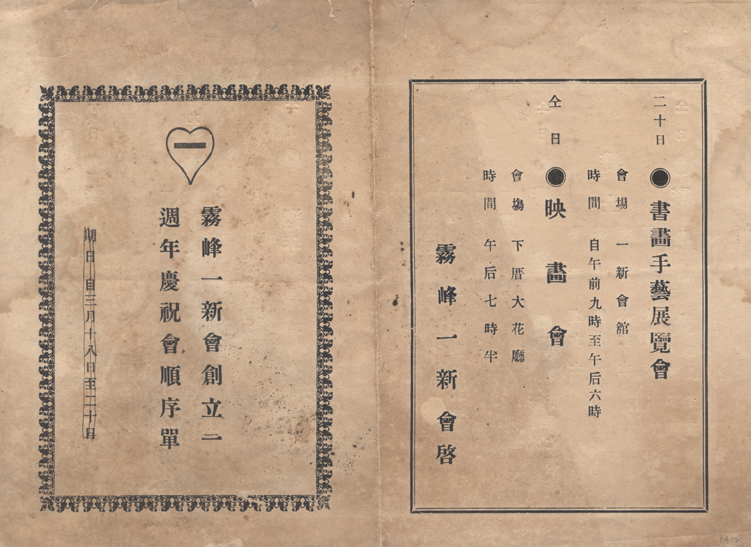 二十日
●書畵手藝展覽會
會場 一新會館
時間 自午前九時至午后六時
仝日
●映畵會
會場 下厝大花廳
時間 午后七時半
霧峰一新會啓
一
霧峰一新會創立二
週年慶祝會順序單
期日自三月十八日至二十日